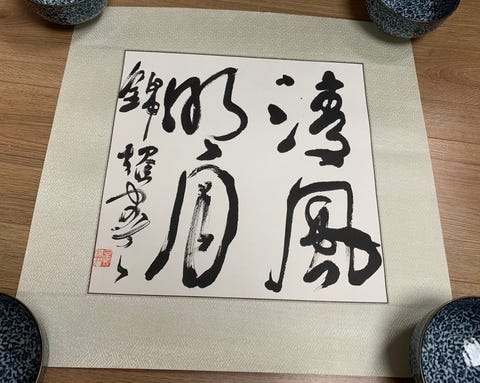 清風
明月
錦耀書